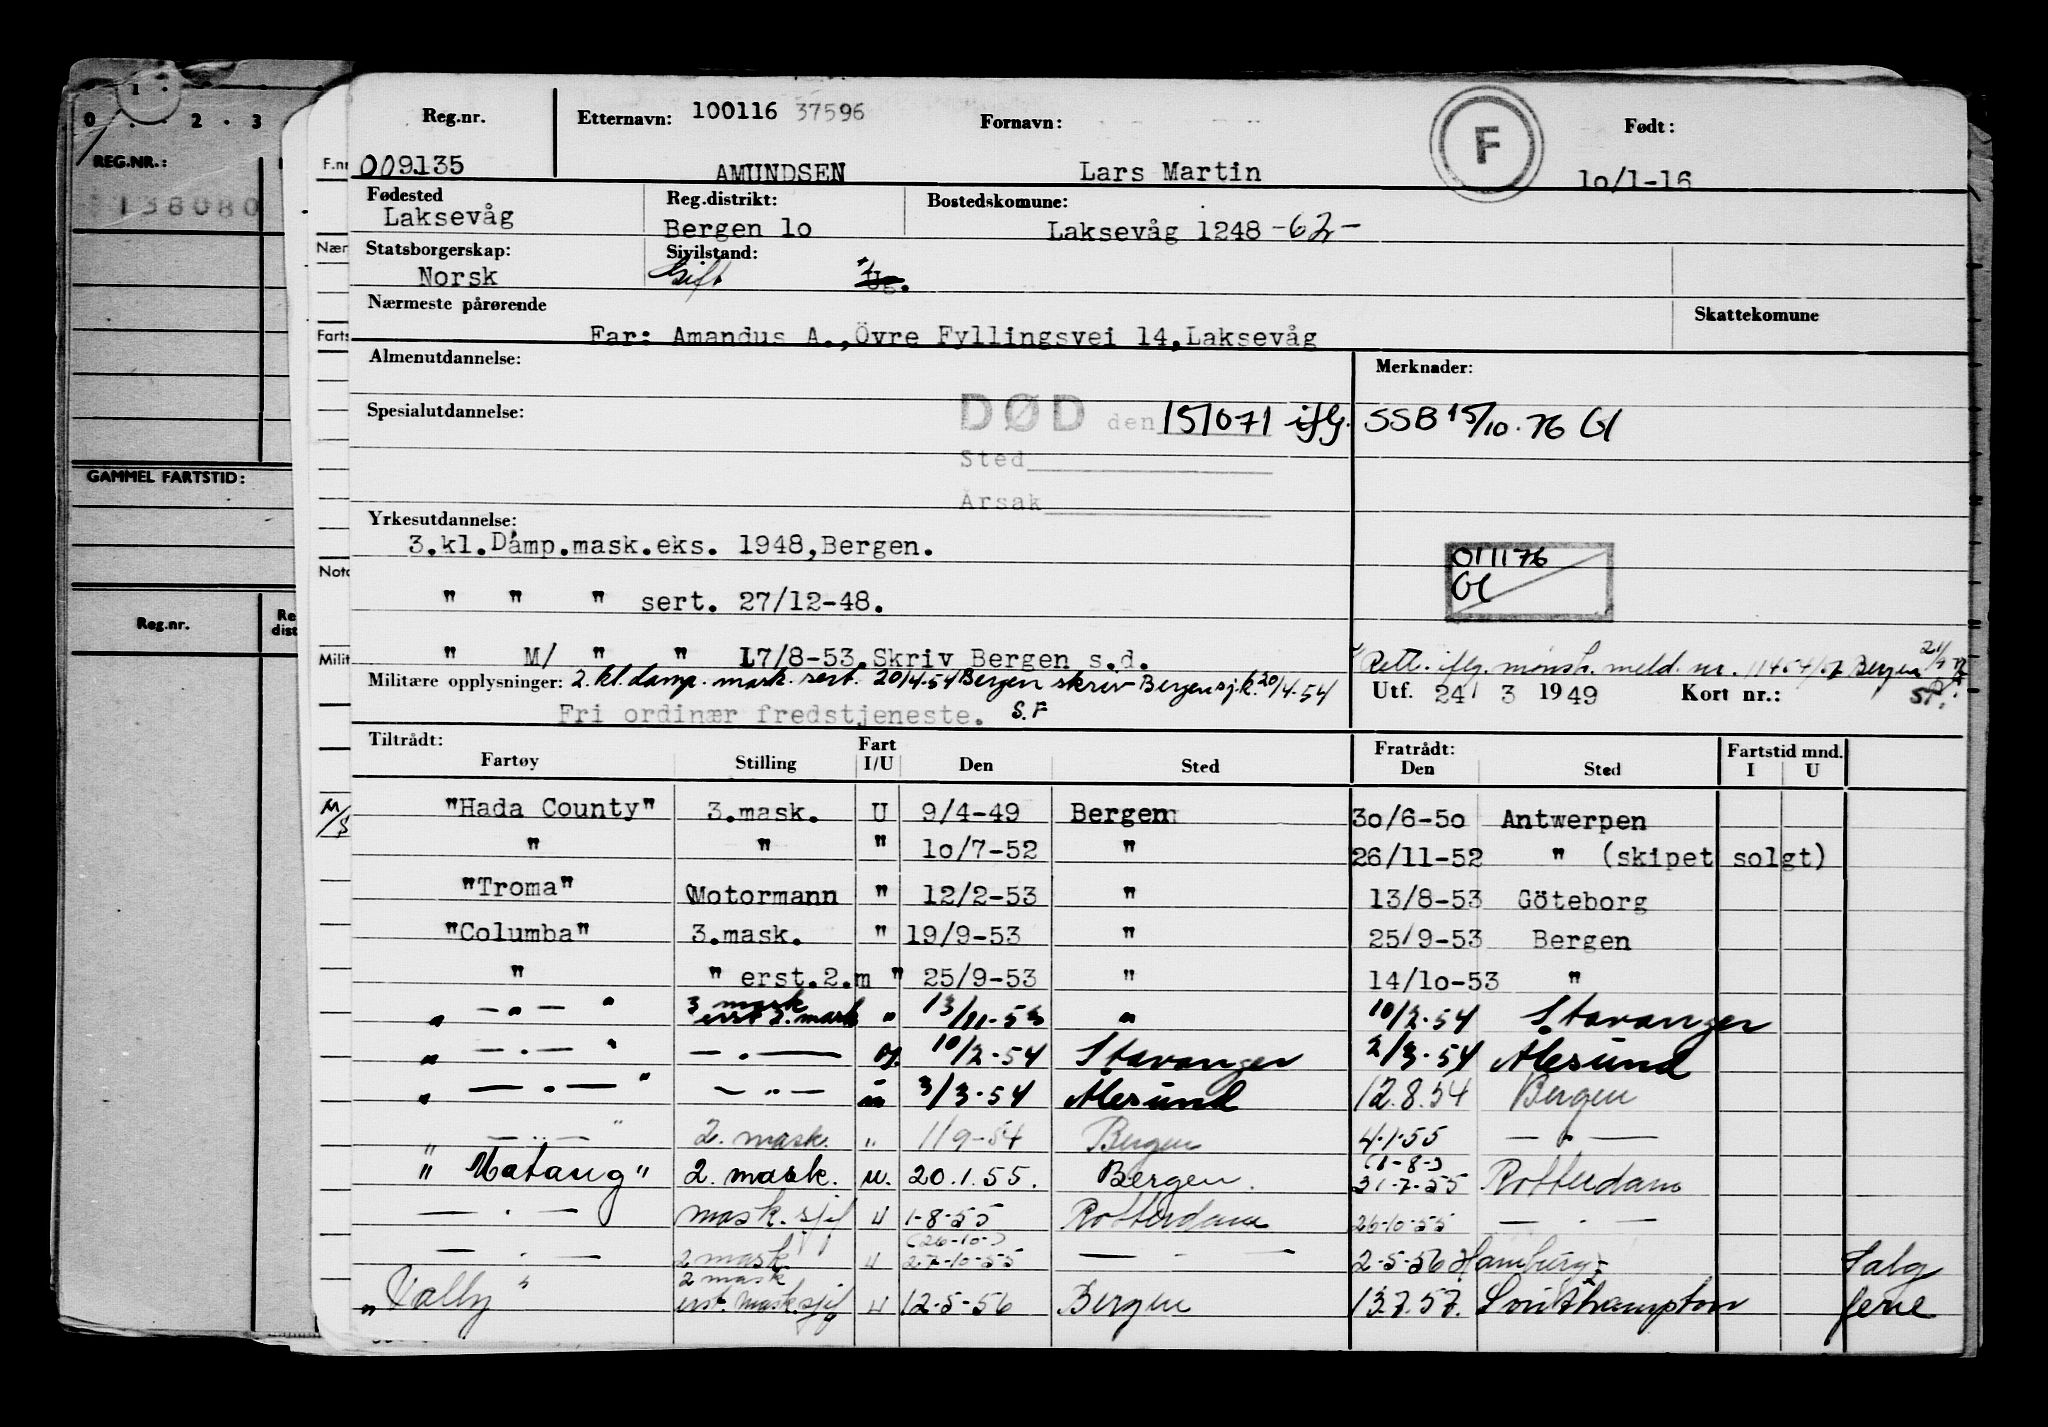 0 . 1 . 2 . 3
REG.NR.:
138080
GAMMEL FARTSTID:
Reg.nr.
Re
dist
F.nr
Nær
Farts
Noto
Milit
Reg.nr. Etternavn: 100116 37596 Fornavn: F Født:
009135 AMUNDSEN Lars Martin 1o/1-16
Fødested Reg.distrikt: Bostedskomune:
Laksevåg Bergen 1o Laksevåg 1248 -62-
Statsborgerskap: Sivilstand:
Norsk Gift Ug.
Nærmeste pårørende Skattekomune
Far: Amandus A.,Övre Fyllingsvei 14,Laksevåg
Almenutdannelse: Merknader:
Spesialutdannelse: DØD den 151071 iflg. SSB 15/10-76 Gl
Sted
Årsak
Yrkesutdannelse:
3.kl.Damp.mask.eks. 1948,Bergen.
011176
Gl
" " " sert. 27/12-48.
" M/ " " 17/8-53.Skriv Bergen s.d.
Rett. iflg. mønstr. meld. nr. Bergen
Militære opplysninger: 2. kl. damp. mask. sert. 20/4-54 Bergen skriv Bergen sj.k. 20/4-54
Utf. 24 3 1949 Kort nr.:
Fri ordinær fredstjeneste. S.F
Tiltrådt: Fart Fratrådt: Fartstid mnd.
Fartøy Stilling I/U Den Sted Den Sted I U
M/S "Hada County" 3.mask. U 9/4-49 Bergen 3o/6-5o Antwerpen
" " " 1o/7-52 " 26/11-52 " (skipet solgt)
"Troma" Motormann " 12/2-53 " 13/8-53 Göteborg
"Columba" 3.mask. " 19/9-53 " 25/9-53 Bergen
" " erst.2.m " 25/9-53 " 14/1o-53 "
" — " — " 3 mask erst 2. mask " 13/11-53 " 10/2-54 Stavanger
" — . — " — . — og. 10/2-54 Stavanger 2/3-54 Ålesund
" — . — " — " — " 3/3-54 Ålesund 12.8.54 Bergen
" — .. — " 2. mask. " 1/9-54 Bergen 4.1.55 — " —
" Matang " 2. mask. u. 20.1.55. Bergen. (1-8-) 31-7-55 Rotterdam
— . — mask.sjef u 1-8-55 Rotterdam 26-10-55 — . —
— . — 2 mask u (26-10-) 27-10-55 — . — 2-5-56 Hamburg Salg
"Valby" 2 mask erst. mask.sjef u 12-5-56 Bergen 13.7.57. Southampton ferie